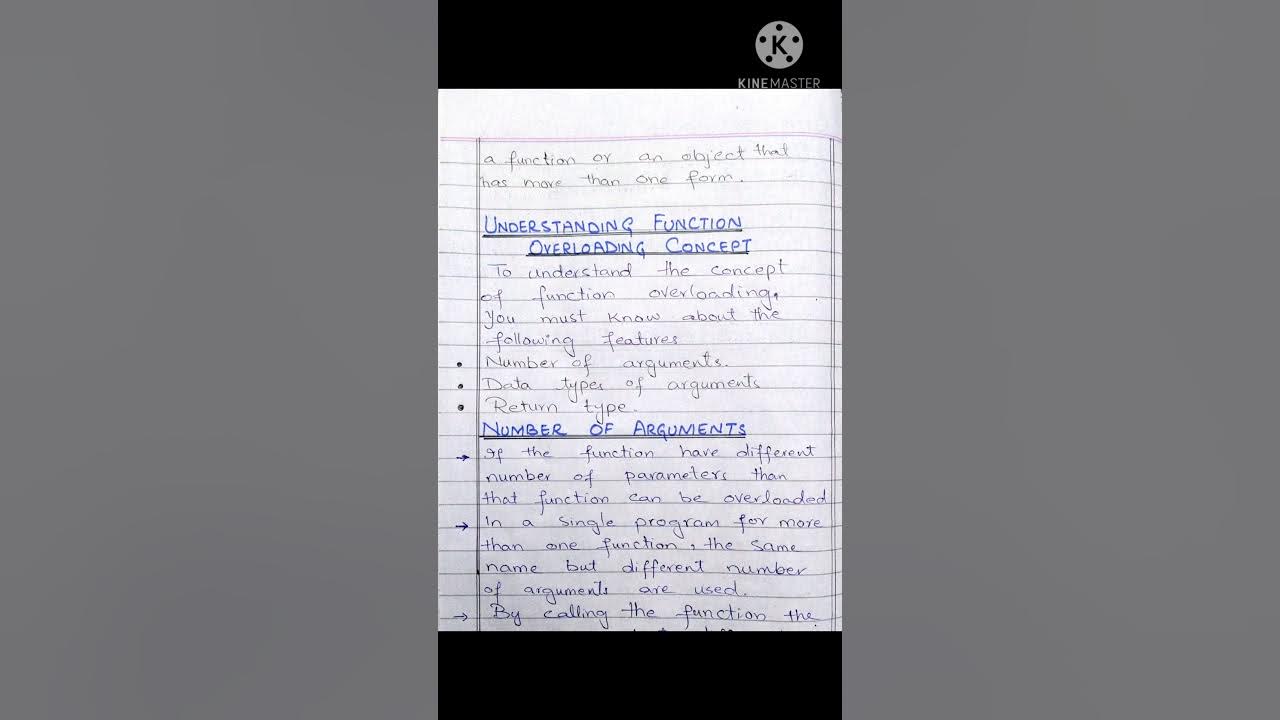 K
KINEMASTER
a function or an object that
has more than one form.
UNDERSTANDING FUNCTION
OVERLOADING CONCEPT
To understand the concept
of function overloading,
You must know about the
following features
• Number of arguments.
• Data types of arguments
• Return type.
NUMBER OF ARGUMENTS
→ If the function have different
number of parameters than
that function can be overloaded
→ In a single program for more
than one function, the same
name but different number
of arguments are used.
→ By calling the function the